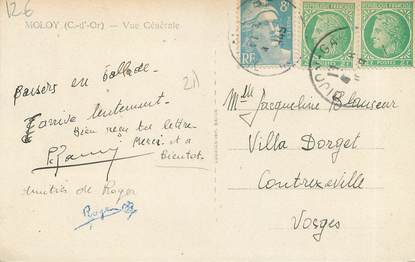 126
MOLOY (C.-d'Or) — Vue Générale
8F
RF
POSTES 2F
211
baisers en ballade.
J'arrive lentement.
Bien reçu ta lettre
Merci et a
Bientot
amitiés de Roger
Roger
Mlle Jacqueline Blanseur
Villa Dorget
Contrexeville
Vosges